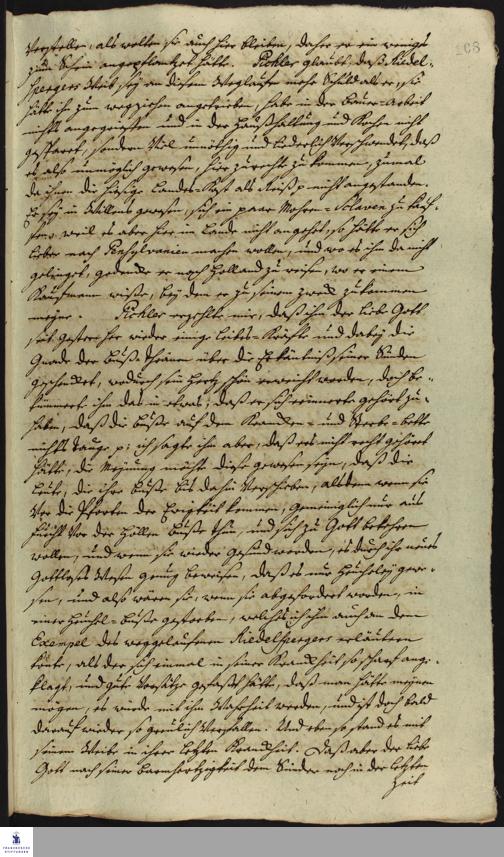 168
verstellen, als wolten sie auch hier bleiben, daher er ein weniges
zum Schein angepflantzet hätte. Pichler glaubt, daß Riedel-
spergers Weib sey an diesem Weglaufen mehr Schuld als er, sie
hätte ihn zum wegziehen angetrieben, habe in der Bauer-Arbeit
nicht angegriffen und in der Haußhaltung und Küche nicht
gesparet, sondern Viel unnöthig und liederlich verschwendet, daß
es also unmöglich gewesen, hier zurecht zu kommen, zumal
da ihnen die hiesige Landes-Kost als Reiß p nicht angestanden.
Er sey in Willens gewesen, sich ein paar Mohren-Sclaven zu kauf-
fen, weil es aber hier im Lande nicht angehet, so hätte er sich
lieber nach Pensylvanien machen wollen, und wo es ihm da nicht
gelingt, gedencke er nach Holland zu reisen, wo er einen
Kaufmann wiste, bey dem er zu seinem Zweck zu kommen
meyne. Pichler erzehlte mir, daß ihm der liebe Gott
seit gestern her wieder einige Leibes-Kräfte und dabey die
Gnade der Buß-Thränen über die Erkäntniß seiner Sünden
geschencket, wodurch sein Hertz schön erweicht worden, doch be-
kümmert ihn das in etwas, daß er sich erinnerte gehört zu
haben, daß die Buße auf dem Krancken- und Sterbe-bette
nichts tauge p; ich sagte ihm aber, daß er es nicht recht gehöret
hätte, die Meynung möchte diese gewesen seyn, daß die
Leute, die ihre Buße bis dahin verschieben, alsdenn wenn sie
vor die Pforten der Ewigkeit kommen, gemeiniglich nur aus
Furcht vor der Höllen Buße thun, und sich zu Gott bekehren
wollen, und wenn sie wieder gesund werden, es durch ihr neues
Gottloses Wesen genug beweisen, daß es nur Heucheley gewe-
sen, und also wären sie, wenn sie abgefordert worden, in
einer Heuchel-Buße gestorben, welches ich ihm auch an dem
Exempel des weggelaufenen Riedelspergers erläutern
könte, als der sich einmal in seiner Kranckheit so scharf ange-
klagt, und gute Vorsätze gefasst hätte, daß man hätte meynen
mögen, es würde mit ihm Wahrheit werden, und ist doch bald
darauf wieder so greulich verfallen. Und eben so stand es mit
seinem Weibe in ihrer letzten Kranckheit. Daß aber der liebe
Gott nach seiner Barmhertzigkeit dem Sünder noch in der letzten
Zeit
FRANCKESCHE
STIFTUNGEN